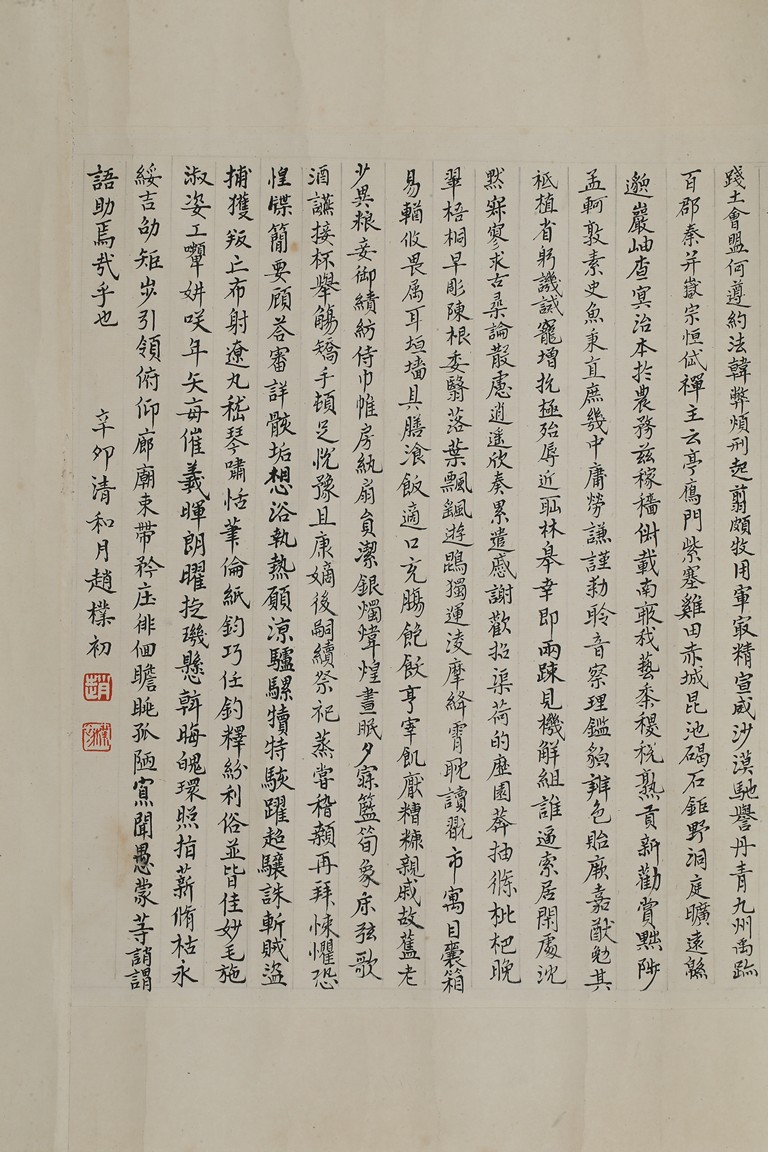 踐土會盟何遵約法韓弊煩刑起翦頗牧用軍冣精宣威沙漠馳譽丹青九州禹跡
百郡秦并嶽宗恒岱禪主云亭鴈門紫塞雞田赤城昆池碣石鉅野洞庭曠遠緜
邈巖岫杳冥治本扵農務兹稼穡俶載南畝我藝黍稷稅熟貢新勸賞黜陟
孟軻敦素史魚秉直庶幾中庸勞謙謹勑聆音察理鑑貌辨色貽厥嘉猷勉其
祗植省躬譏誡寵增抗極殆辱近恥林皋幸即兩疎見機解組誰逼索居閑處沈
默寂寥求古尋論散慮逍遙欣奏累遣慼謝歡招渠荷的歷園莽抽條枇杷晚
翠梧桐早彫陳根委翳落葉飄颻遊鵾獨運淩摩絳霄耽讀翫市寓目囊箱
易輶攸畏属耳垣墻具膳湌飯適口充膓飽飫亨宰飢厭糟糠親戚故舊老
少異粮妾御績紡侍巾帷房紈扇員潔銀燭煒煌晝眠夕寐籃筍象床弦歌
酒讌接杯舉觴矯手頓足悅豫且康嫡後嗣續祭祀蒸嘗稽顙再拜悚懼恐
惶牒簡要顧荅審詳骸垢想浴執熱願涼驢騾犢特駭躍超驤誅斬賊盜
捕獲叛亡布射遼丸嵇琴嘯恬筆倫紙鈞巧任釣釋紛利俗並皆佳妙毛施
淑姿工顰妍咲年矢每催羲暉朗曜琁璣懸斡晦魄環照指薪脩祜永
綏吉劭矩步引領俯仰廊廟束帶矜庄徘徊瞻眺孤陋寡聞愚蒙等誚謂
語助焉哉乎也
辛卯清和月趙樸初
趙
樸初